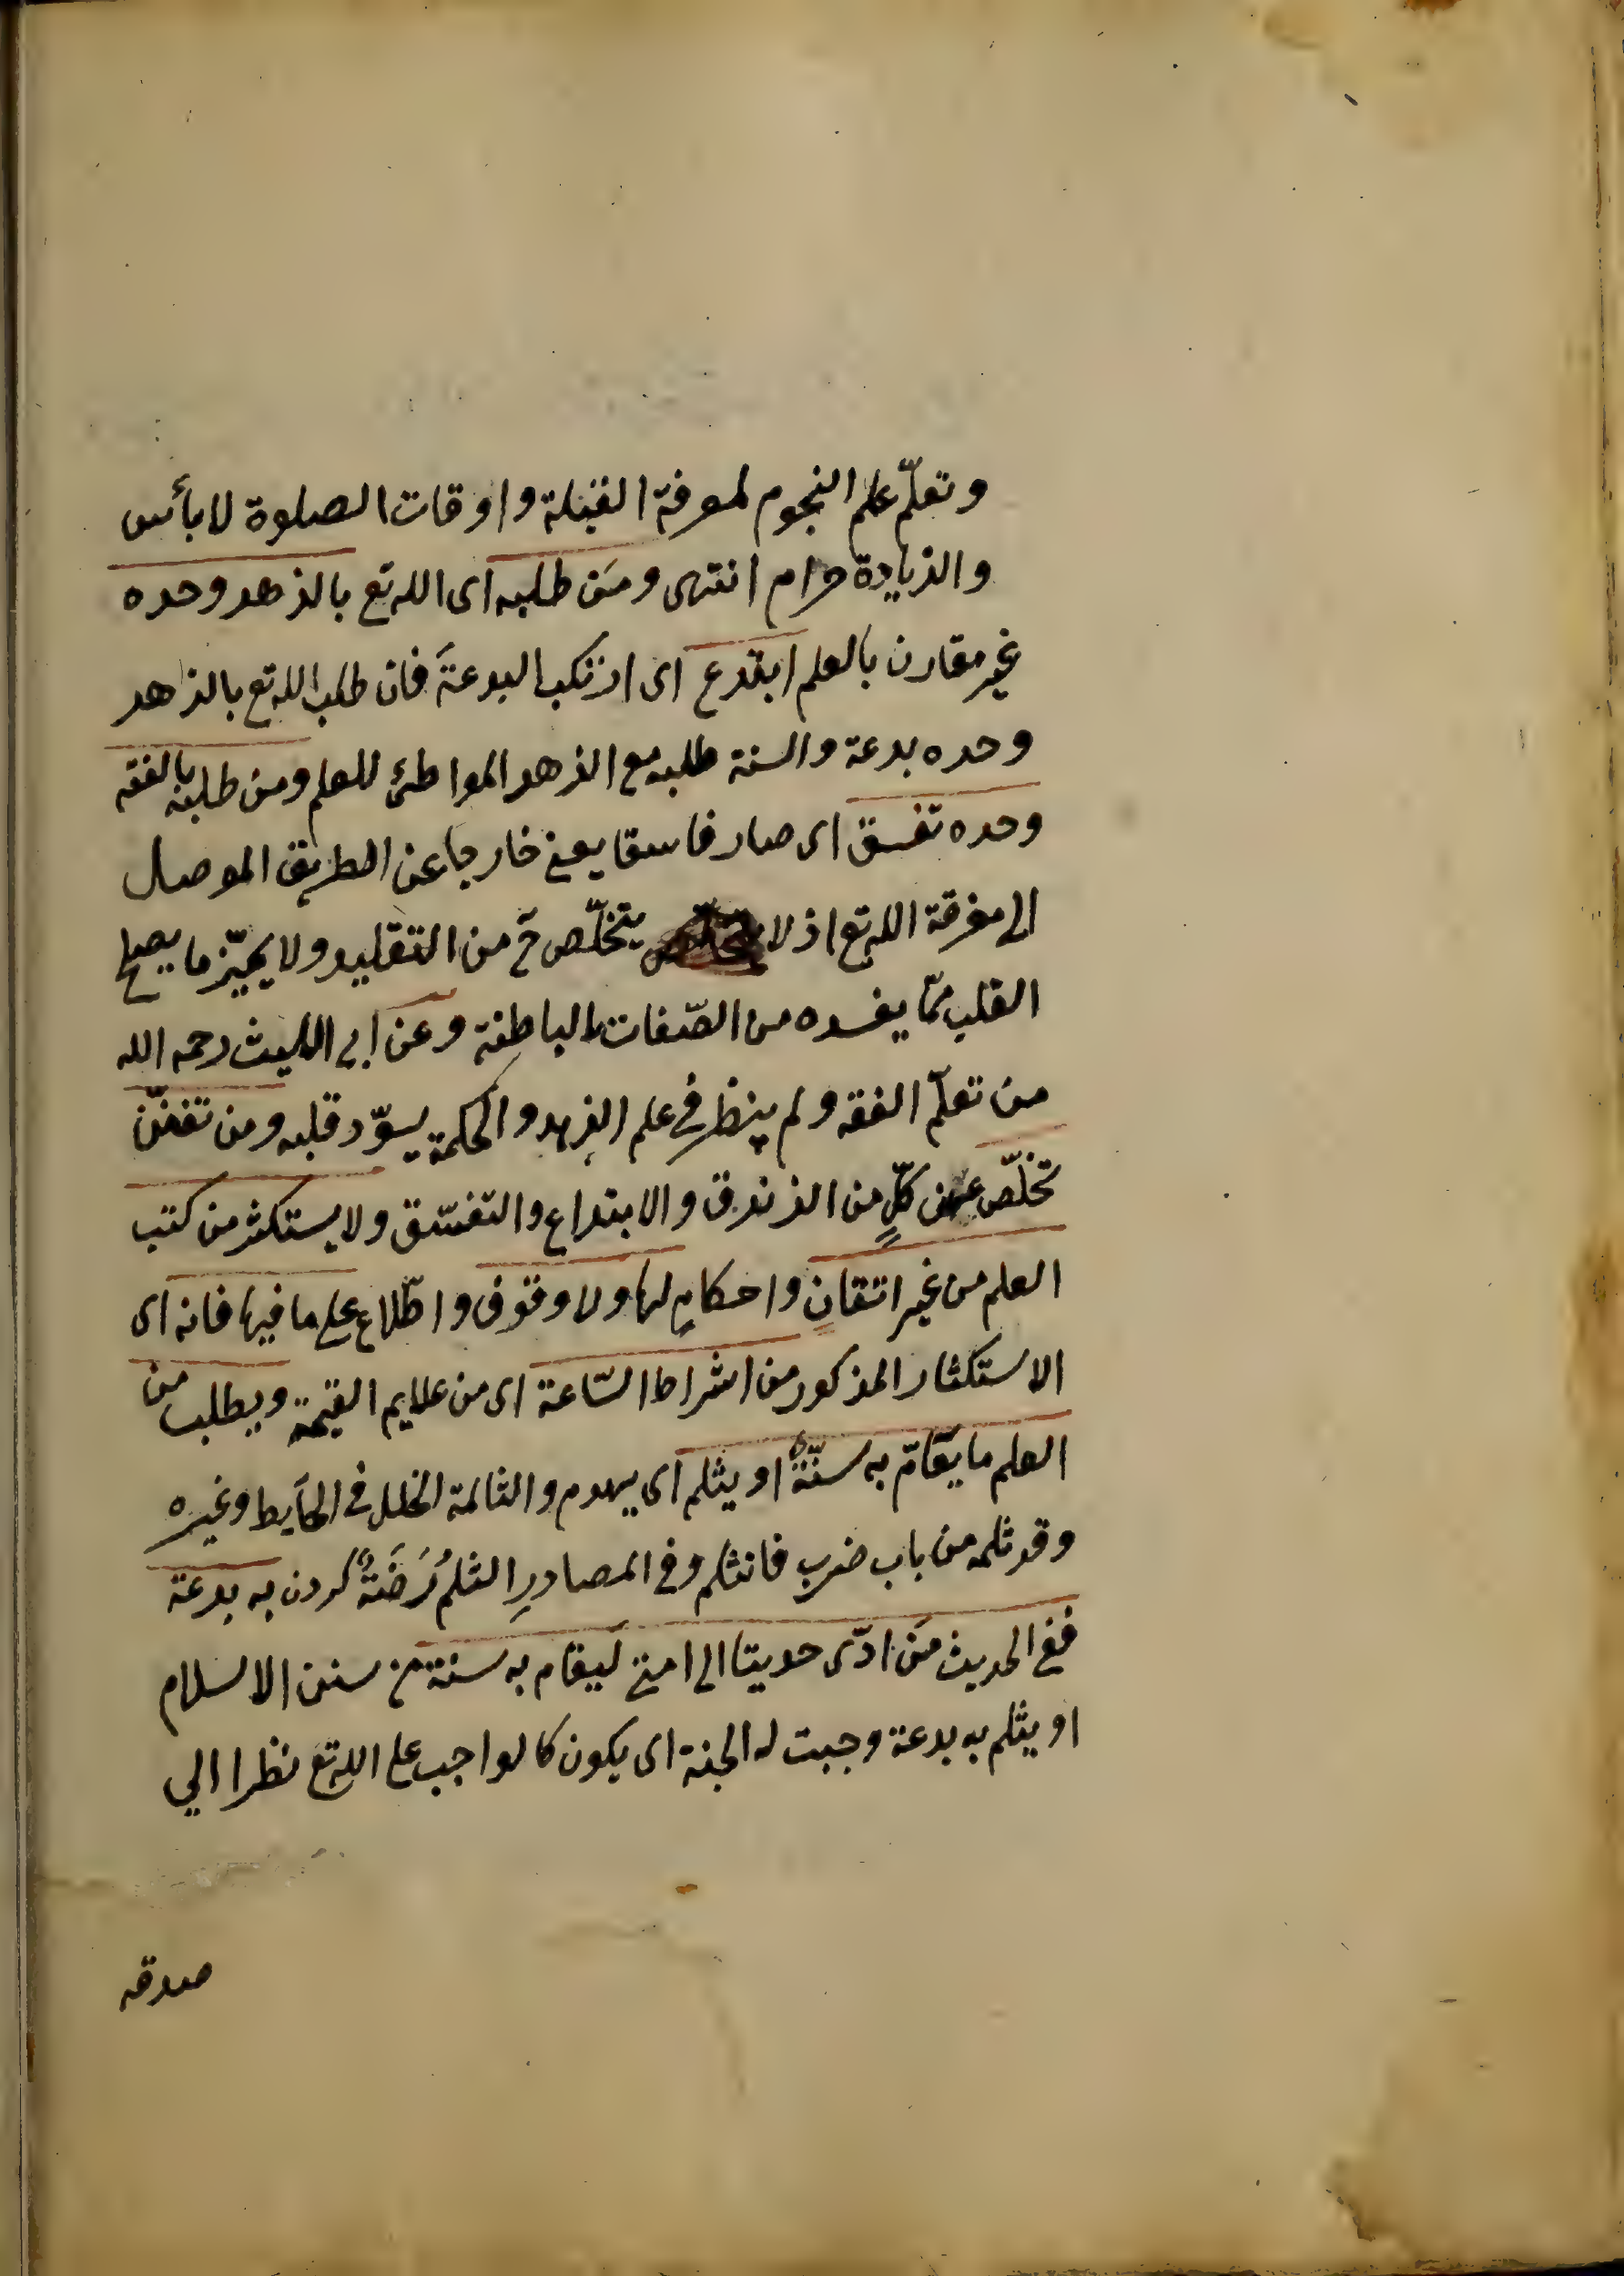 وتعلّم علم النجوم لمعرفة القبلة واوقات الصلوة لا بأس
والزيادة حرام انتهى ومَن طلبه اى الله تع بالزهد وحده
غير مقارن بالعلم ابتدع اى ارتكب البدعةَ فان طلب الله تع بالزهد
وحده بدعة والسنة طلبه مع الزهد المواطئ للعلم ومن طلبه بالفقه
وحده تفسق اى صار فاسقا يعنى خارجا عن الطريق الموصل
الى معرفة الله تع اذ لا يتخلّص ح من التقليد ولا يميّز ما يصلح
القلب ممّا يفسده من الصّفات الباطنة وعن ابى الليث رحمه الله
من تعلّم الفقه ولم ينظر فى علم الزهد والحكمة يسوّد قلبه ومن تفنّن
تخلّص عن كلٍّ من الزندق والابتداع والتفسّق ولا يستكثر من كتب
العلم من غير اتقانٍ واحكامٍ لها ولا وقوف واطّلاع على ما فيها فانه اى
الاستكثار المذكور من اشراط السّاعة اى من علايم القيمة ويطلب من
العلم ما يقام به سنّةٌ او يثلم اى يهدم والثالمة الخلل فى الحآيط وغيره
وقد ثلمه من باب ضرب فانثلم وفى المصادرِ الثلمُ رَخَنَهْ كردن به بدعة
ففى الحديث مَن ادّى حديثا الى امتى ليقام به سنة من سنن الاسلام
او يثلم به بدعة وجبت له الجنة اى يكون كالواجب على الله تع نظرا الي
صدقه